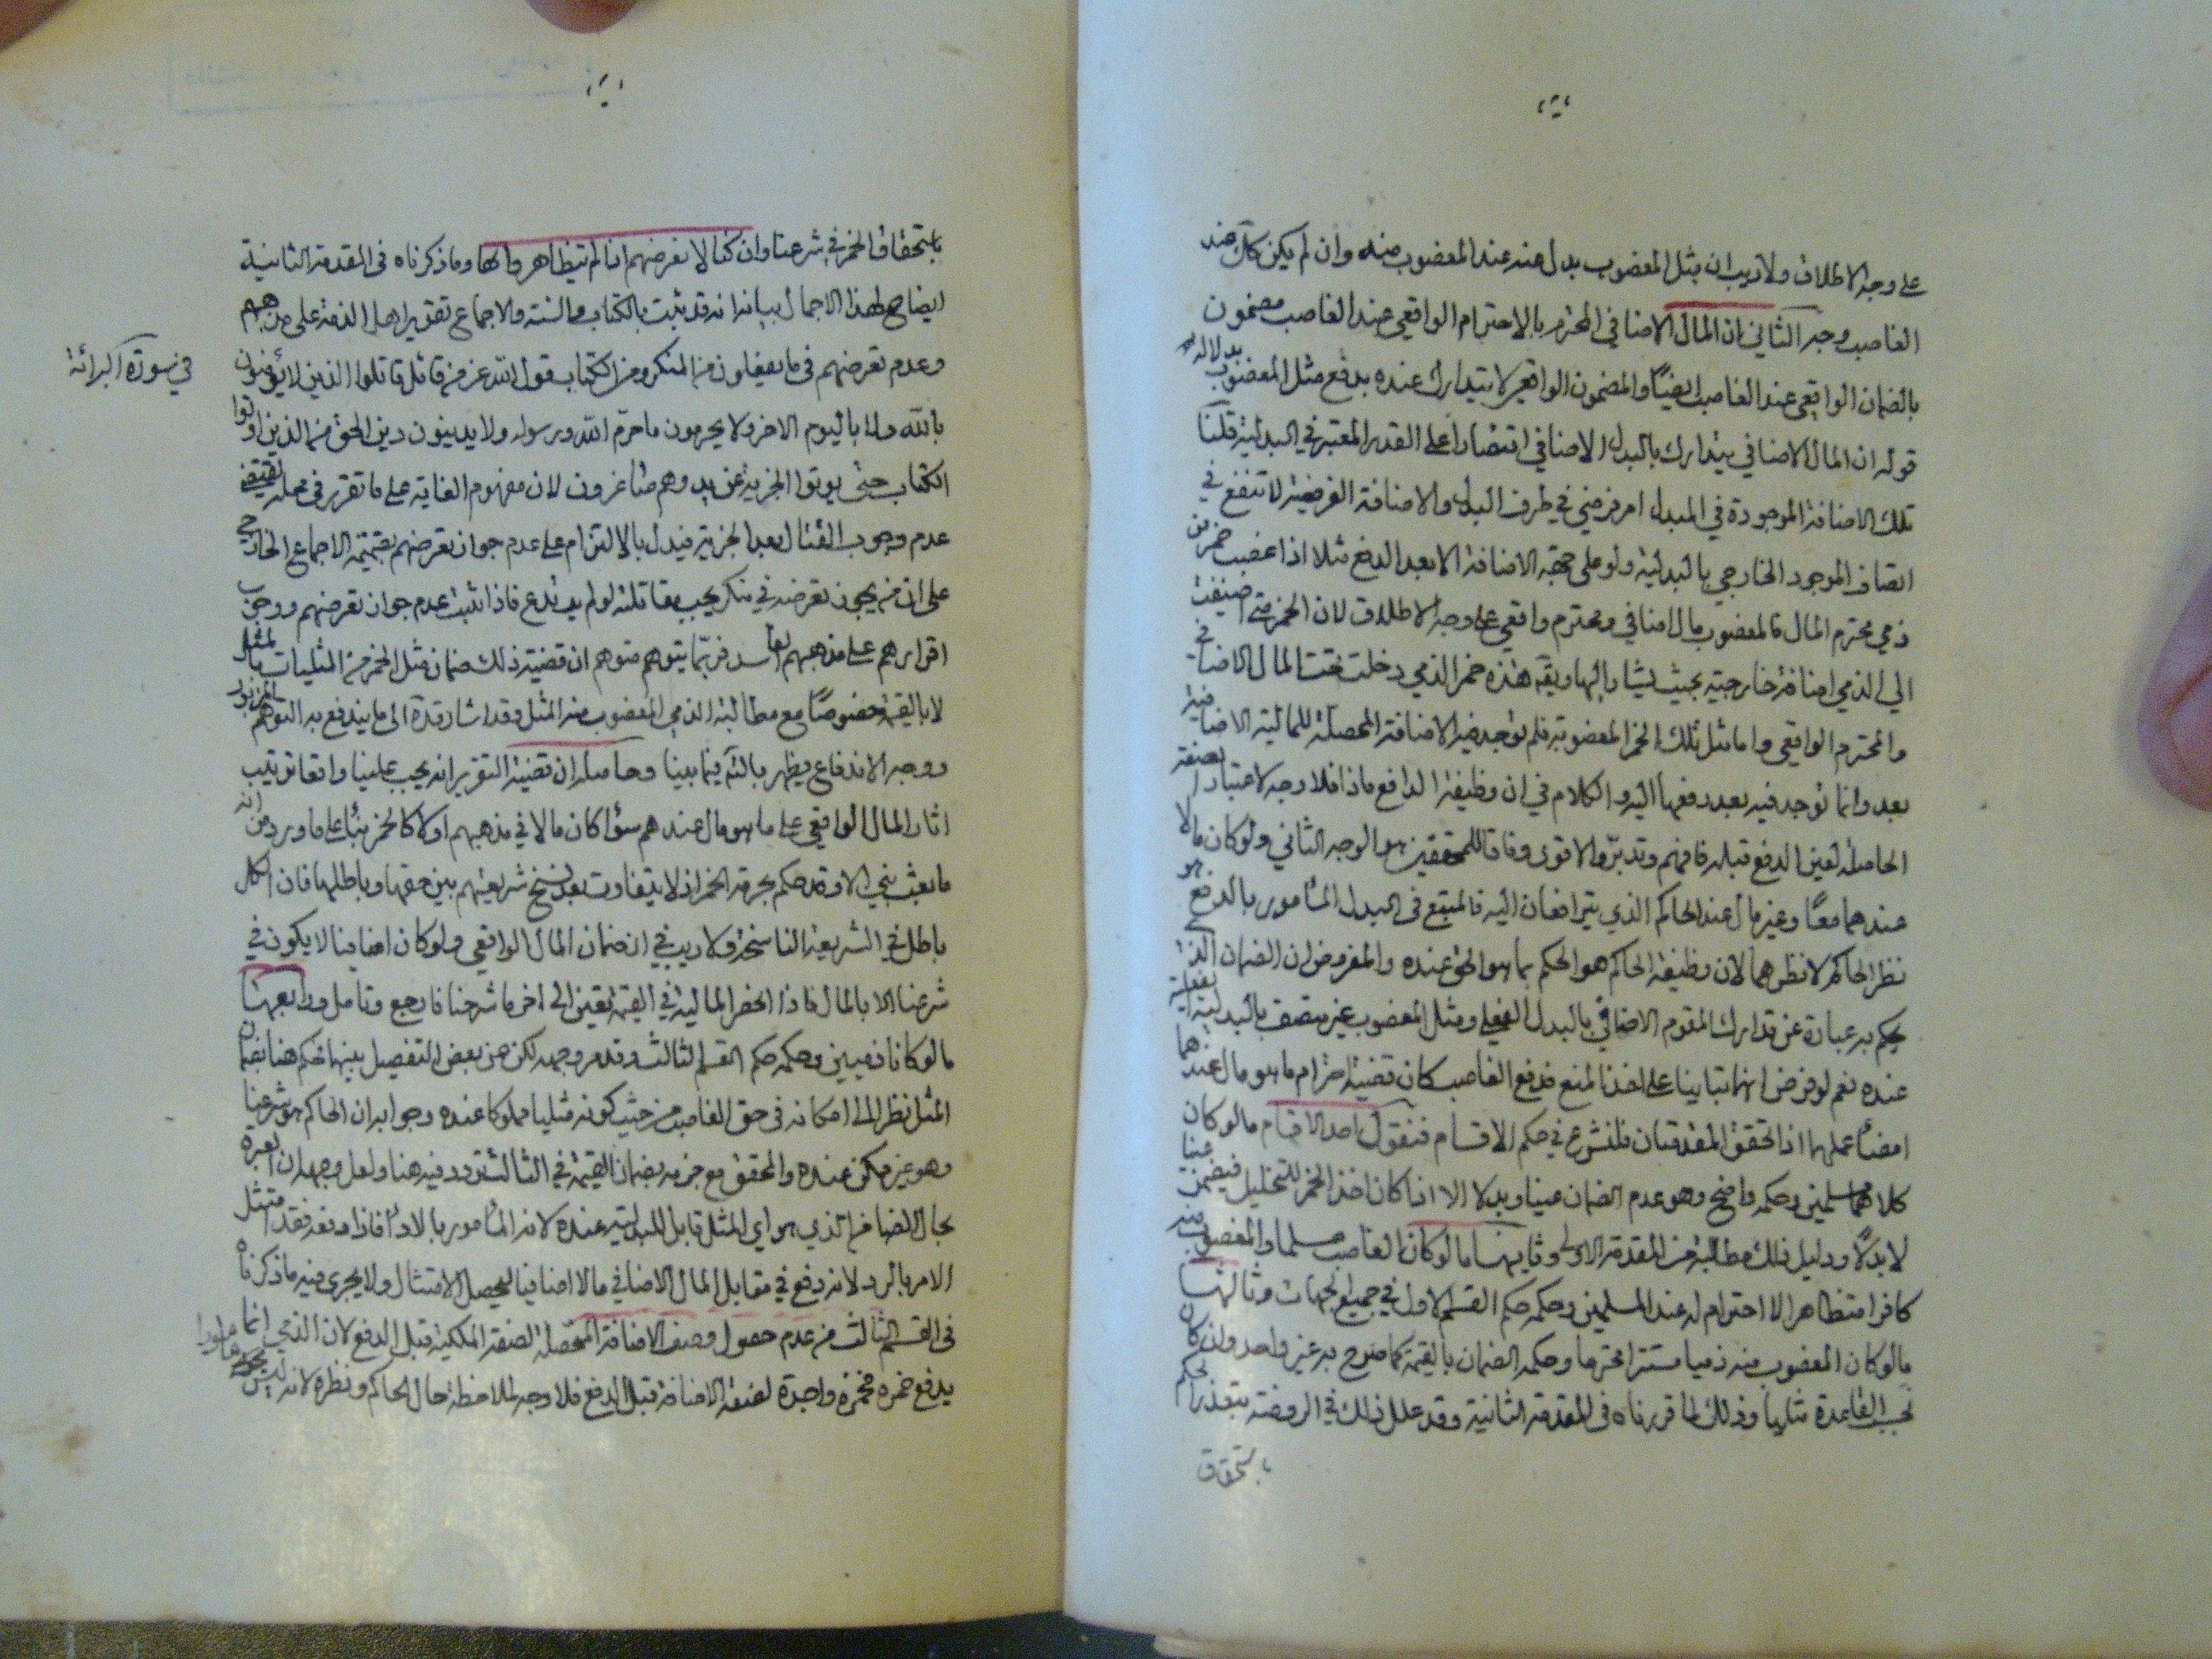 على وجه الاطلاق ولا ريب ان مثل المغصوب بدل عنه عند المغصوب منه وان لم يكن كك عند
الغاصب وجه الثاني ان المال الاضافي المحترم بالاحترام الواقعي عند الغاصب مضمون
بالضمان الواقعي عند الغاصب ايضا والمضمون الواقعي لا يتدارك عنده بدفع مثل المغصوب
قوله ان المال الاضافي يتدارك بالبدل الاضافي اقتصارا على القدر المعتبر في البدلية قلنا
تلك الاضافة الموجودة في المبدل امر فرضي في طرف البدل والاضافة الفرضية لا تنفع في
اتصاف الموجود الخارجي بالبدلية ولو على جهة الاضافة الا بعد الدفع مثلا اذا غصب خمر من
ذمي محترم المال فالمغصوب مال اضافي ومحترم واقعي على وجه الاطلاق لان الخمر متى اضيفت
الى الذمي اضافة خارجية بحيث يشار اليها ويقه هذه خمر الذمي دخلت تحت المال الاضافي
والمحترم الواقعي واما مثل تلك الخمر المغصوبة فلم توجد فيه الاضافة المحصلة للمالية الاضافية
بعد وانما توجد فيه بعد دفعها اليه والكلام في ان وظيفة الدافع ماذا فلا وجه لاعتبار الصفة
الحاصلة لعين الدفع قبله فافهم وتدبر والاقوى وفاقا للمحققين هو الوجه الثاني ولو كان مالا
عندهما معا وغير مال عند الحاكم الذي يترافعان اليه فالمتبع في البدل المأمور بالدفع هو
نظر الحاكم لا نظرهما لان وظيفة الحاكم هو الحكم بما هو الحق عنده والمفروض ان الضمان الذي
يحكم به عبارة عن تدارك المقوم الاضافي بالبدل الفعلي ومثل المغصوب غير متصف بالبدلية الفعلية
عنده نعم لو فرض انهما تباينا على اخذ المنع فدفع الغاصب كان قضية احترام ما هو مال عندهما
امضاء عملهما اذا تحقق المقدمتان فلنشرع في حكم الاقسام فنقول احد الاقسام ما لو كان
كلاهما مسلمين وحكمه واضح وهو عدم الضمان عينا وبدلا الا اذا كان اخذ الخمر للتخليل فيضمن عينا
لا بدلا ودليل ذلك مطالبة من المقدمة الاولى وثانيها ما لو كان الغاصب مسلما والمغصوب منه
كافرا متظاهرا لا احترام له عند المسلمين وحكمه حكم القسم الاول في جميع الجهات وثالثها
ما لو كان المغصوب منه ذميا مستترا محترما وحكمه الضمان بالقيمة كما صرح به غير واحد وان كان
بحسب القاعدة مثليا وذلك لما قررناه في المقدمة الثانية وقد علل ذلك في الروضة بتعذر الحكم
باستحقاق
باستحقاق الخمر في شرعنا وان كنا لا نعرضهم اذا لم يتظاهروا بها وما ذكرناه في المقدمة الثانية
ايضاح لهذا الاجمال بيانه انه قد ثبت بالكتاب والسنة والاجماع تقرير اهل الذمة على مذهبهم
وعدم تعرضهم في ما يفعلون من المنكر ومن الكتاب قول الله عز من قائل قاتلوا الذين لا يؤمنون
في سورة البرائة
بالله ولا باليوم الاخر ولا يحرمون ما حرم الله ورسوله ولا يدينون دين الحق من الذين اوتوا
الكتاب حتى يوتوا الجزية عن يد وهم صاغرون لان مفهوم الغاية على ما تقرر في محله يقتضي
عدم وجوب القتال بعد الجزية فيدل بالالتزام على عدم جواز تعرضهم بضميمة الاجماع الخارجي
على ان من يجوز تعرضه في منكر يجب مقاتلته لو لم يرتدع فاذا ثبت عدم جواز تعرضهم ووجوب
اقرارهم على مذهبهم الفاسد فربما يتوهم متوهم ان قضية ذلك ضمان مثل الخمر من المثليات بالمثل
لا بالقيمة خصوصا مع مطالبة الذمي المغصوب منه المثل وقد اشار قده الى ما يندفع به التوهم المزبور
ووجه الاندفاع يظهر بالتأمل فيما بينا وحاصله ان قضية التقرير انه يجب علينا واقعا ترتيب
اثار المال الواقعي على ما هو مال عندهم سواء كان مالا في مذهبهم او لا كالخمر بناء على ما ورد من انه
ما بعث نبي الا وقد حكم بحرمة الخمر اذ لا يتفاوت بعد نسخ شريعتهم بين حقها وباطلها فان الكل
باطل في الشريعة الناسخة ولا ريب في ان ضمان المال الواقعي ولو كان اضافيا لا يكون في
شرعنا الا بالمال فاذا انحصر المالية في القيمة تعين الى اخر ما شرحنا فارجع وتامل ورابعها
ما لو كانا ذميين وحكمه حكم القسم الثالث وقد مر وجهه لكن عن بعض التفصيل بينهما فحكم هنا بضمان
المثل نظرا الى امكانه في حق الغاصب من حيث كونه مثليا مملوكا عنده وجوابه ان الحاكم هو شرعنا
وهو غير ممكن عنده والمحقق مع جزمه بضمان القيمة في الثالث تردد فيه هنا ولعل وجهه ان العبرة
بحال الضامن الذي هو اي المثل قابل للبدلية عنده لانه المأمور بالاداء فاذا دفعه فقد امتثل
الامر بالرد لانه دفع في مقابل المال الاضافي مالا اضافيا فيحصل الامتثال ولا يجري فيه ما ذكرناه
في القسم الثالث من عدم حصول وصف الاضافة المحصلة لصفة الملكية قبل الدفع لان الذمي انما
يدفع خمره فخمره واجدة لصفة الاضافة قبل الدفع فلا وجه لملاحظة حال الحاكم ونظره لانه ليس